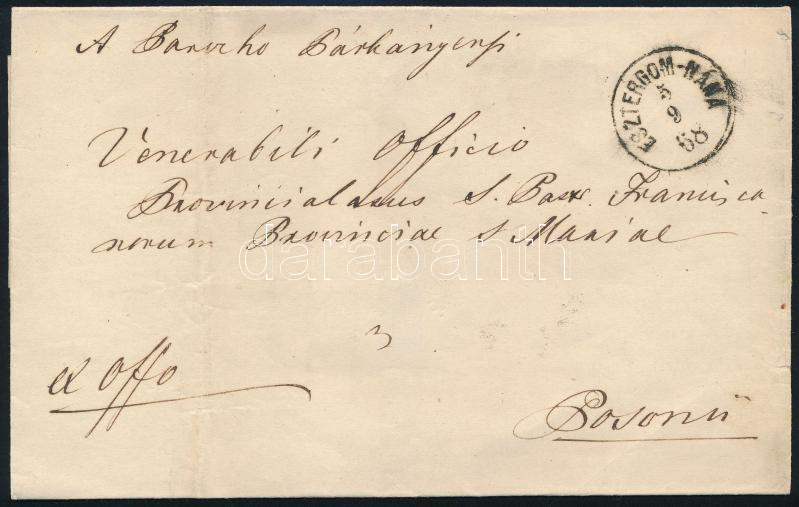 A Parocho Párkányensi
ESZTERGOM-NÁNA
5
9
68
Venerabili Officio
Provincialatus S. Patr. Francisca
norum Provinciae S Mariae
darabanth
3
ex Offo
Posonii